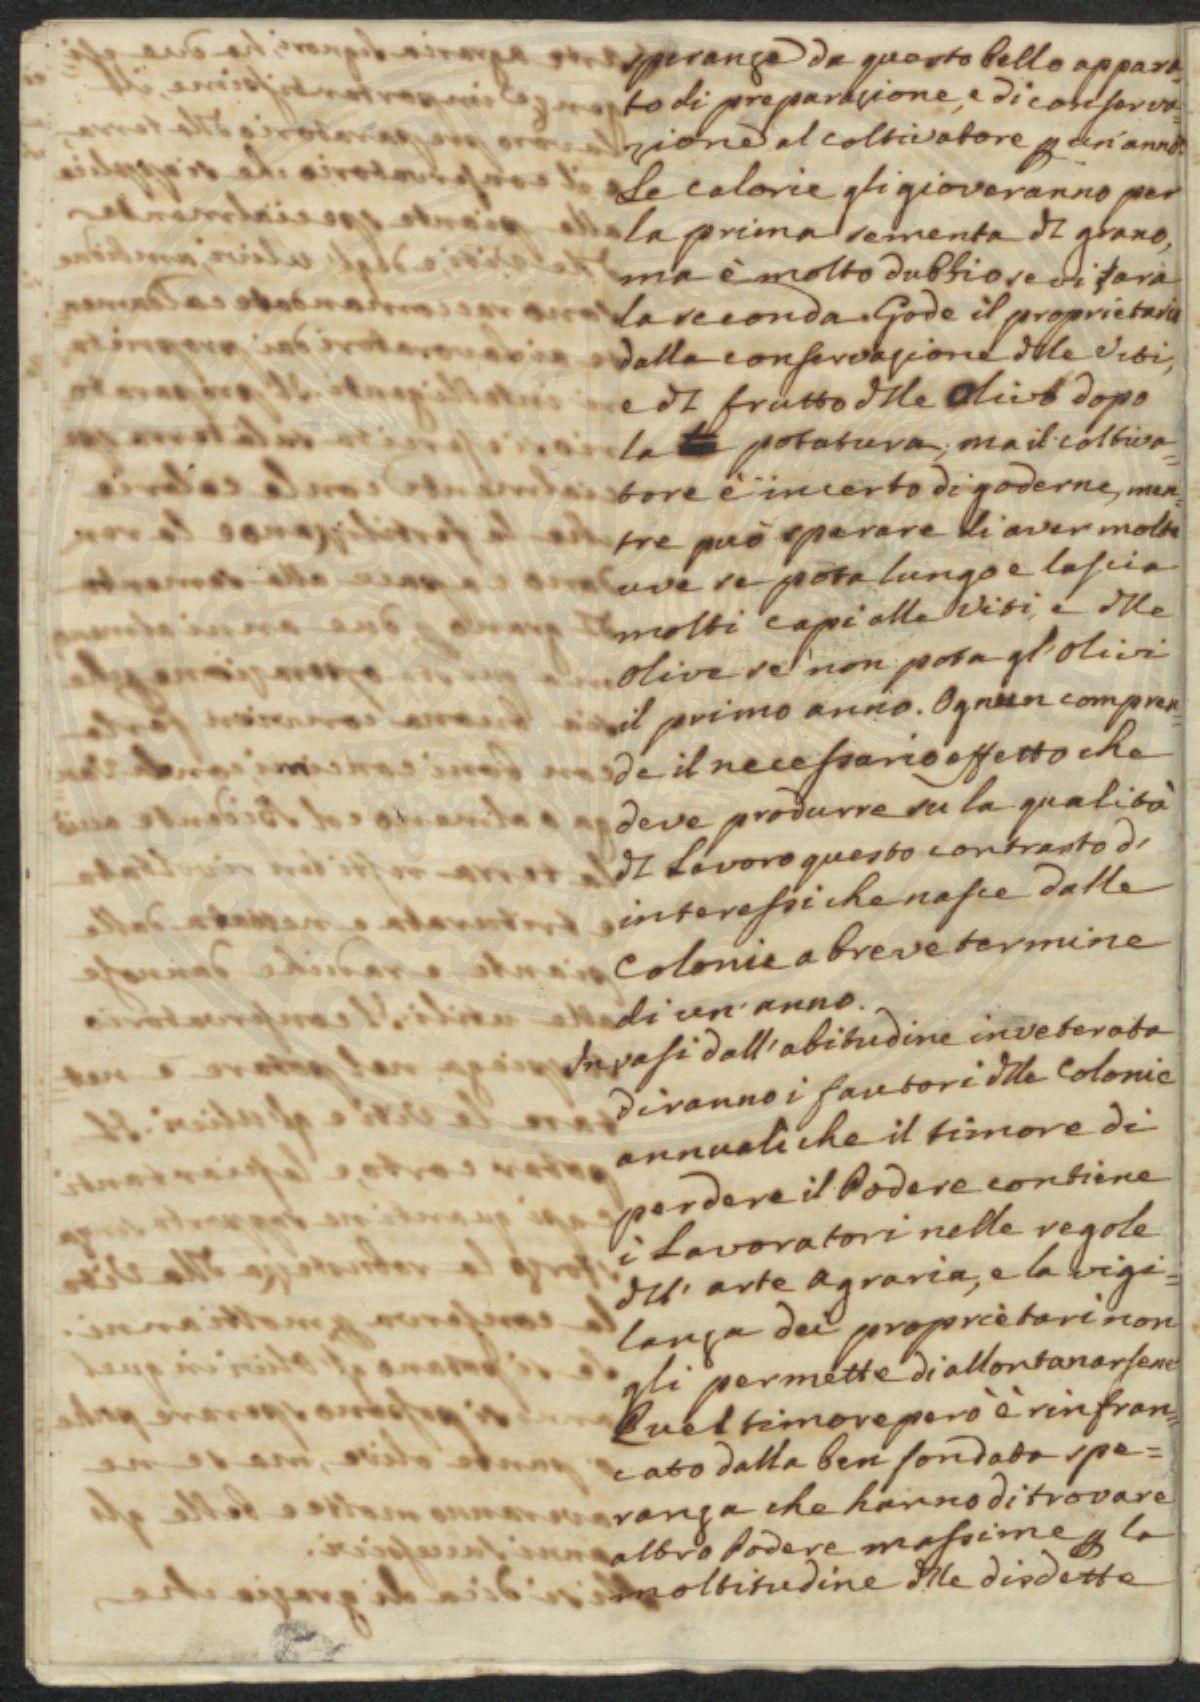 speranze da questo bello appara-
to di preparazione, e di conserva-
zione al coltivatore p un'anno?
Le calorie gli gioveranno per
la prima sementa dl grano,
ma è molto dubbio se vi sara
la seconda. Gode il proprietario
dalla conservazione dlle Viti,
e dl frutto dlle Olive dopo
la potatura; ma il coltiva-
tore è incerto di goderne, men-
tre può sperare di aver molte
uve se pota lungo e lascia
molti capi alle Viti, e dlle
Olive se non pota gl'Olivi
il primo anno. Ognun compren-
de il necessario effetto che
deve produrre su la qualità
dl Lavoro questo contrasto d'
interessi che nasce dalle
Colonie a breve termine
di un'anno.
Invasi dall'abitudine inveterata
diranno i fautori dlle Colonie
annuali che il timore di
perdere il Podere contiene
i Lavoratori nelle regole
dll'arte Agraria, e la vigi-
lanza dei proprietari non
gli permette di allontanarsene
Quel timore però è rinfran-
cato dalla ben fondata spe-
ranza che hanno di trovare
altro Podere massime p la
moltitudine dlle disdette